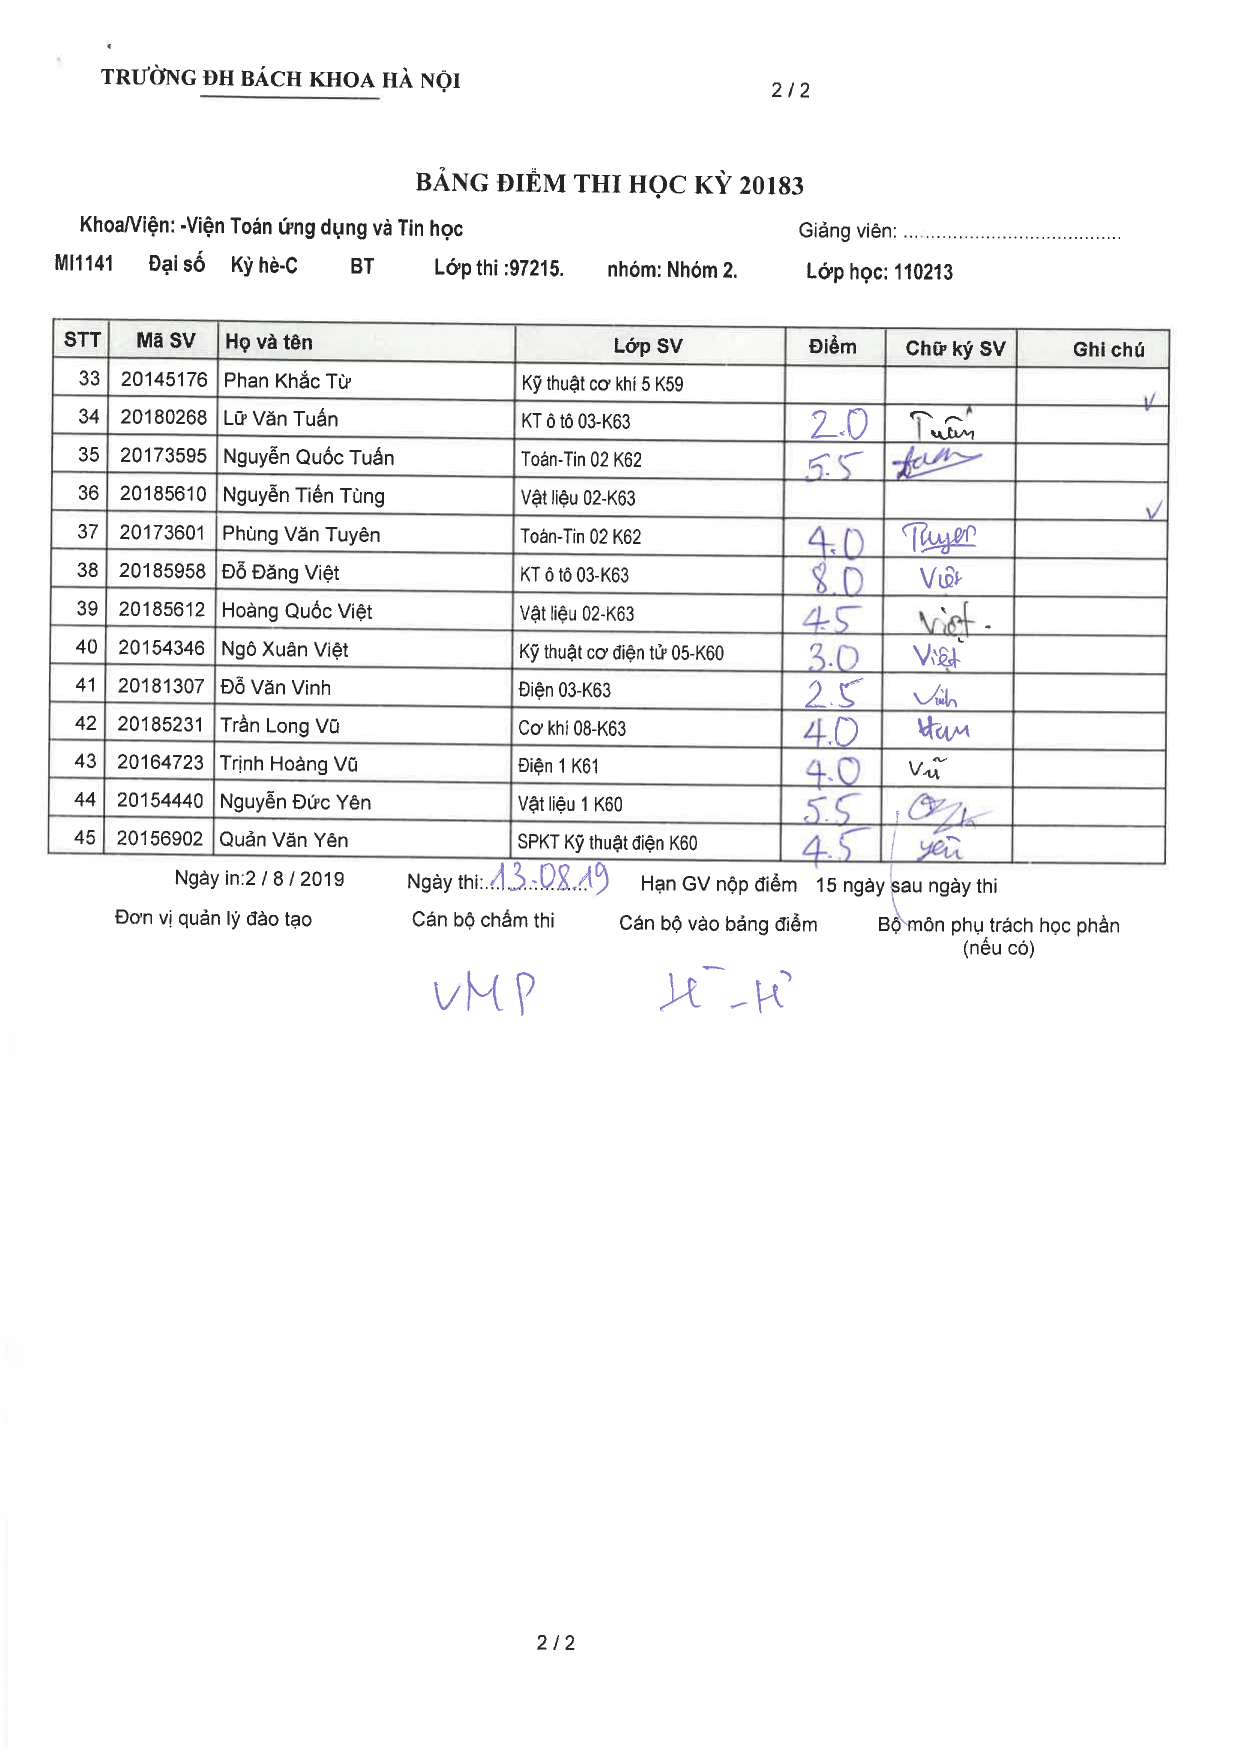 TRƯỜNG ĐH BÁCH KHOA HÀ NỘI
2 / 2
BẢNG ĐIỂM THI HỌC KỲ 20183
Khoa/Viện: -Viện Toán ứng dụng và Tin học Giảng viên: ........................................
MI1141 Đại số Kỳ hè-C BT Lớp thi :97215. nhóm: Nhóm 2. Lớp học: 110213
STT Mã SV Họ và tên Lớp SV Điểm Chữ ký SV Ghi chú
33 20145176 Phan Khắc Từ Kỹ thuật cơ khí 5 K59 ✓
34 20180268 Lữ Văn Tuấn KT ô tô 03-K63 2.0 Tuấn
35 20173595 Nguyễn Quốc Tuấn Toán-Tin 02 K62 5.5
36 20185610 Nguyễn Tiến Tùng Vật liệu 02-K63 ✓
37 20173601 Phùng Văn Tuyên Toán-Tin 02 K62 4.0 Tuyen
38 20185958 Đỗ Đăng Việt KT ô tô 03-K63 8.0 Việt
39 20185612 Hoàng Quốc Việt Vật liệu 02-K63 4.5 Việt
40 20154346 Ngô Xuân Việt Kỹ thuật cơ điện tử 05-K60 3.0 Việt
41 20181307 Đỗ Văn Vinh Điện 03-K63 2.5 Vinh
42 20185231 Trần Long Vũ Cơ khí 08-K63 4.0
43 20164723 Trịnh Hoàng Vũ Điện 1 K61 4.0 Vũ
44 20154440 Nguyễn Đức Yên Vật liệu 1 K60 5.5
45 20156902 Quản Văn Yên SPKT Kỹ thuật điện K60 4.5 yên
Ngày in:2 / 8 / 2019 Ngày thi:..13.08.19 Hạn GV nộp điểm 15 ngày sau ngày thi
Đơn vị quản lý đào tạo Cán bộ chấm thi Cán bộ vào bảng điểm Bộ môn phụ trách học phần
(nếu có)
VMP
2 / 2